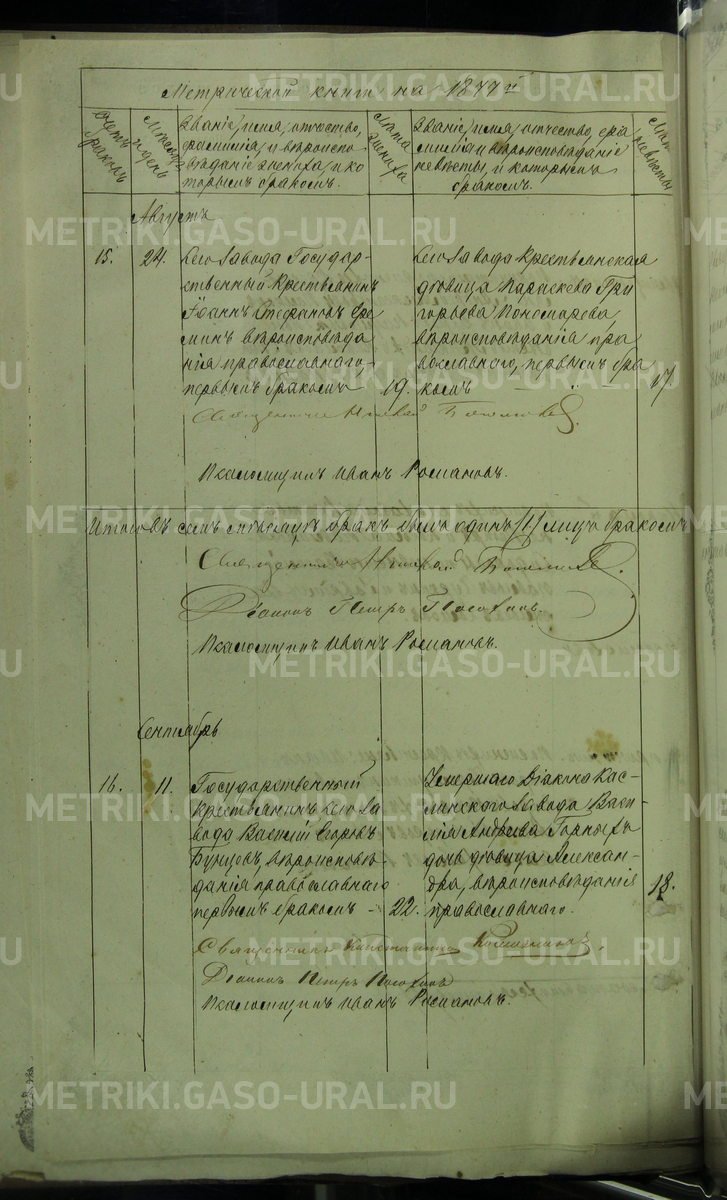 Метрической книги на 1877й
Счетъ браковъ.
Мѣсяцъ и день
Званіе, имя, отчество, фамилія и вѣроисповѣданіе жениха, и которымъ бракомъ.
Лѣта жениха
Званіе, имя, отчество, фамилія и вѣроисповѣданіе невѣсты, и которымъ бракомъ.
Лѣта невѣсты
Августъ
15.
24.
Сего завода Государ-
ственный крестьянинъ
Іоаннъ Стефановъ Ере
минъ вѣроисповѣда
нія православнаго,
первымъ бракомъ
19.
Сего завода Крестьянская
дѣвица Параскева Гри
горьева Пономарева,
вѣроисповѣданія пра
вославнаго, первымъ бра
комъ
17.
Священникъ Николай
Псаломщикъ Иванъ Романовъ.
Итого въ семъ мѣсяцѣ бракъ былъ одинъ /1/ лицъ бракомъ
Священникъ Николай
Діаконъ Петръ
Псаломщикъ Иванъ Романовъ.
Сентябрь
16.
11.
Государственный
крестьянинъ сего за
вода Василій Егоровъ
вѣроисповѣ-
данія православнаго
первымъ бракомъ -
22.
Умершаго Діакона Кас-
линскаго завода Васи-
лія Андреева Горныхъ
дочь дѣвица Алексан-
дра, вѣроисповѣданія
православнаго.
18.
Священникъ Константинъ
Діаконъ Петръ
Псаломщикъ Иванъ Романовъ.
METRIKI.GASO-URAL.RU